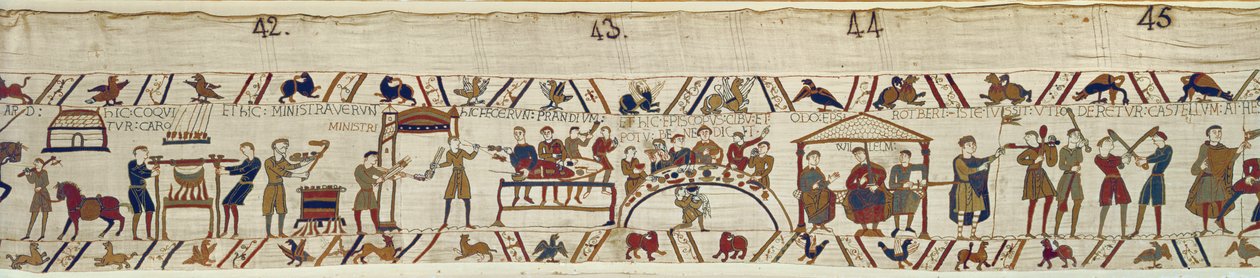 42.
43.
44
45
ARD:
HIC: COQVI
TVR: CARO
ET HIC: MINISTRAVERVN
MINISTRI
HIC FECERVN: PRANDIVM:
ET HIC: EPISCOPVS: CIBV: ET
POTV: BENEDICIT:
ODO: EPS:
WILLELM:
ROTBERT:
ISTE IVSSIT: VT FODERETVR: CASTELLVM: AT: H